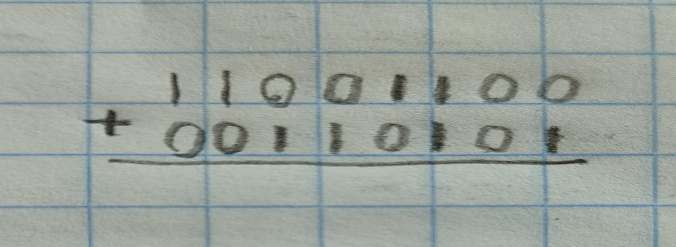 11001100
+ 00110101